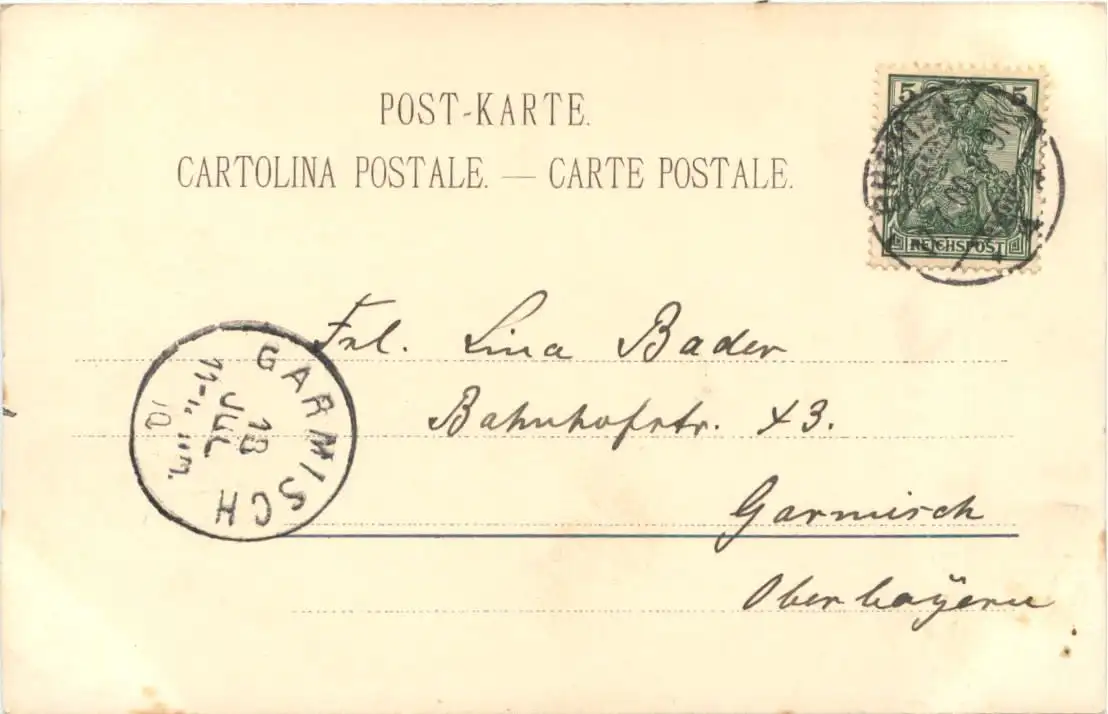 POST-KARTE.
CARTOLINA POSTALE. — CARTE POSTALE.
5 5
REICHSPOST
BREMEN
00
Frl. Lina Bader
Bahnhofstr. 43.
Garmisch
Oberbayern
GARMISCH
18
JUL